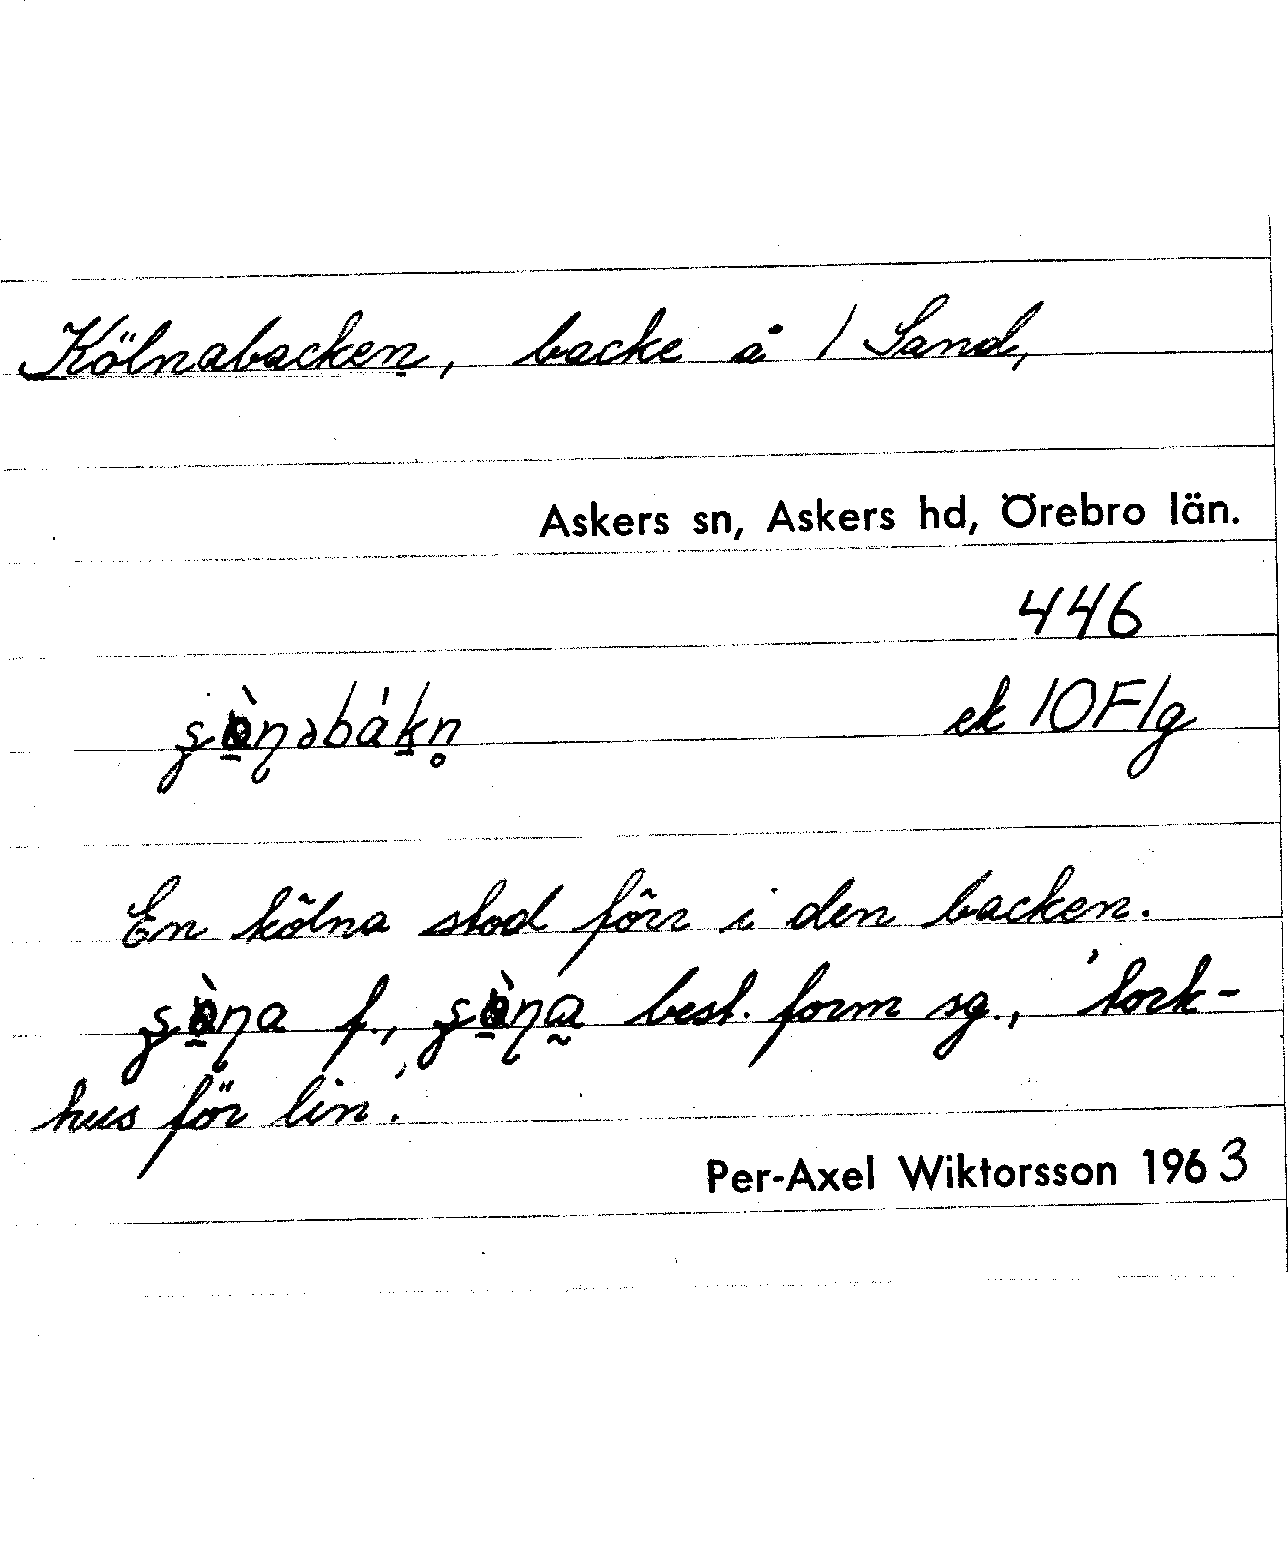 Kölnabacken, backe å 1 Sand,
Askers sn, Askers hd, Örebro län.
446
ek 10F1g
En kölna stod förr i den backen.
f., best. form sg., 'tork-
hus för lin'.
Per-Axel Wiktorsson 1963